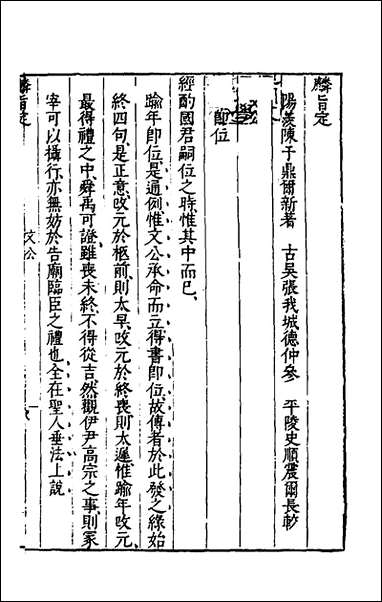 麟旨定
陽羨陳于鼎爾新著　古吳張我城德仲參　平陵史順震爾長較
即位
經酌國君嗣位之時惟其中而已
踰年即位是通例惟文公承命而立得書即位故傳者於此發之緣始
終四句是正意改元於柩前則太早改元於終喪則太遲惟踰年改元
最得禮之中舜禹可證雖喪未終不得從吉然觀伊尹高宗之事則冢
宰可以攝行亦無妨於告廟臨臣之禮也全在聖人垂法上說
麟旨定
文公
一